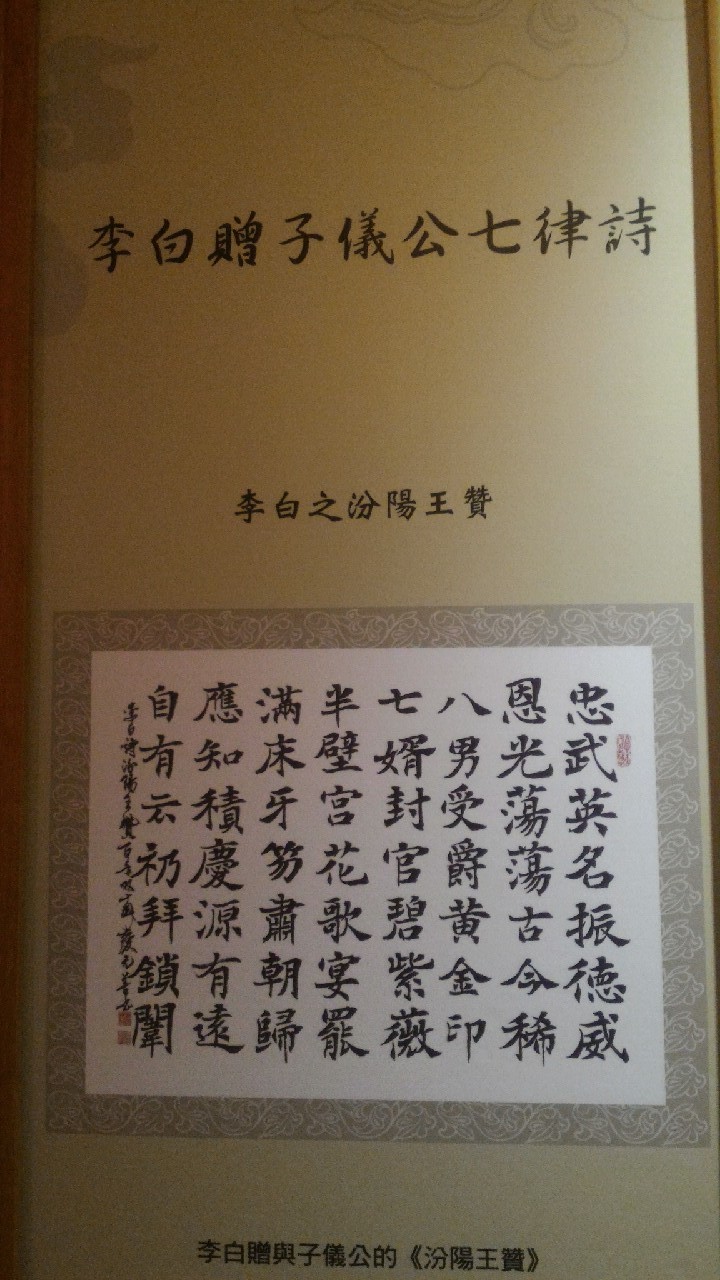 李白贈子儀公七律詩
李白之汾陽王贊
忠武英名振德威
恩光蕩蕩古今稀
八男受爵黄金印
七婿封官碧紫薇
半壁宮花歌宴罷
滿床牙笏肅朝歸
應知積慶源有遠
自有云礽拜鎖闈
李白贈與子儀公的《汾陽王贊》